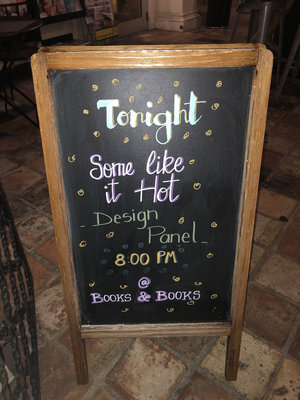 Tonight
Some like
it Hot
- Design
Panel -
8:00 PM
@
Books & Books